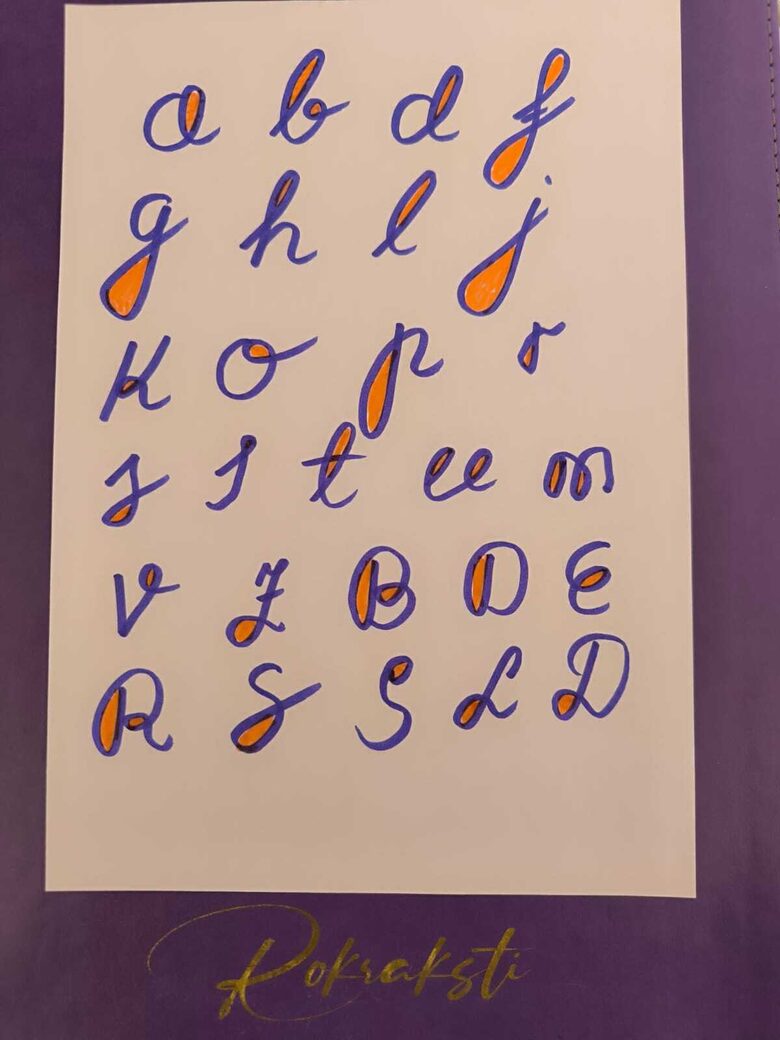 a b d f
g h l j
k o p r
s s t u m
v z B D E
R S S L D
Rokraksti